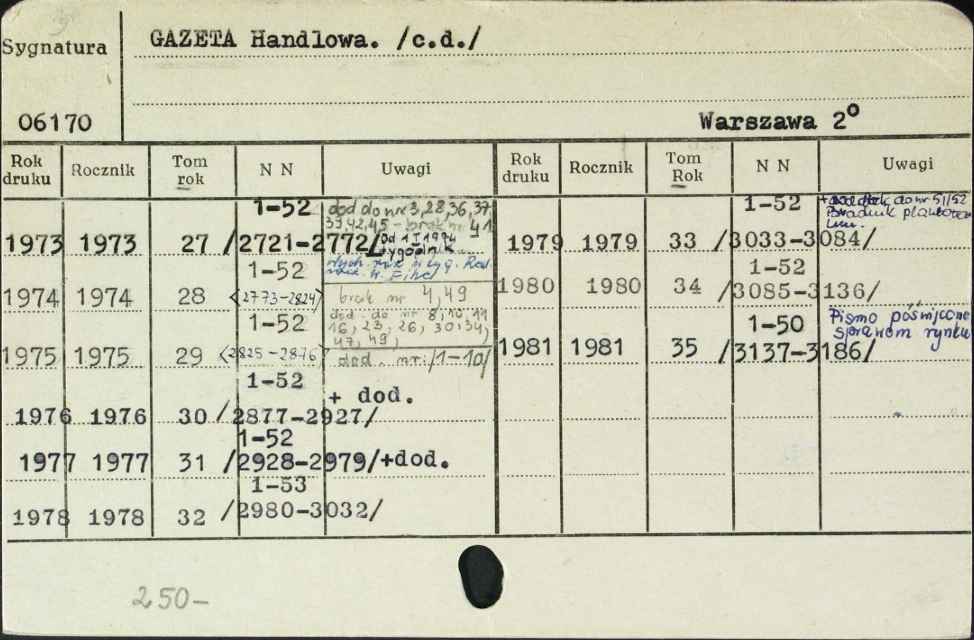 Sygnatura
GAZETA Handlowa. /c.d./
06170
Warszawa 2°
Rok druku
Rocznik
Tom rok
N N
Uwagi
1-52
1973 1973 27 /2721-2772/
dod do nr 3,28,36,37
39,42,45 - brak nr 41
Od 1 I 1974
tygodnik
1-52
1974 1974 28 <2773-2824>
brak nr 4,49
1-52
1975 1975 29 <2825-2876>
dod. do nr 8,10,14
16, 23, 26, 30, 34,
47, 49,
dod. nr: /1-10/
1-52
1976 1976 30 /2877-2927/
+ dod.
1-52
1977 1977 31 /2928-2979/+dod.
1-53
1978 1978 32 /2980-3032/
Rok druku
Rocznik
Tom Rok
N N
Uwagi
1-52
1979 1979 33 /3033-3084/
do nr 51/52
Poradnik
1-52
1980 1980 34 /3085-3136/
1-50
1981 1981 35 /3137-3186/
Pismo poświęcone
sprawom rynku
250-